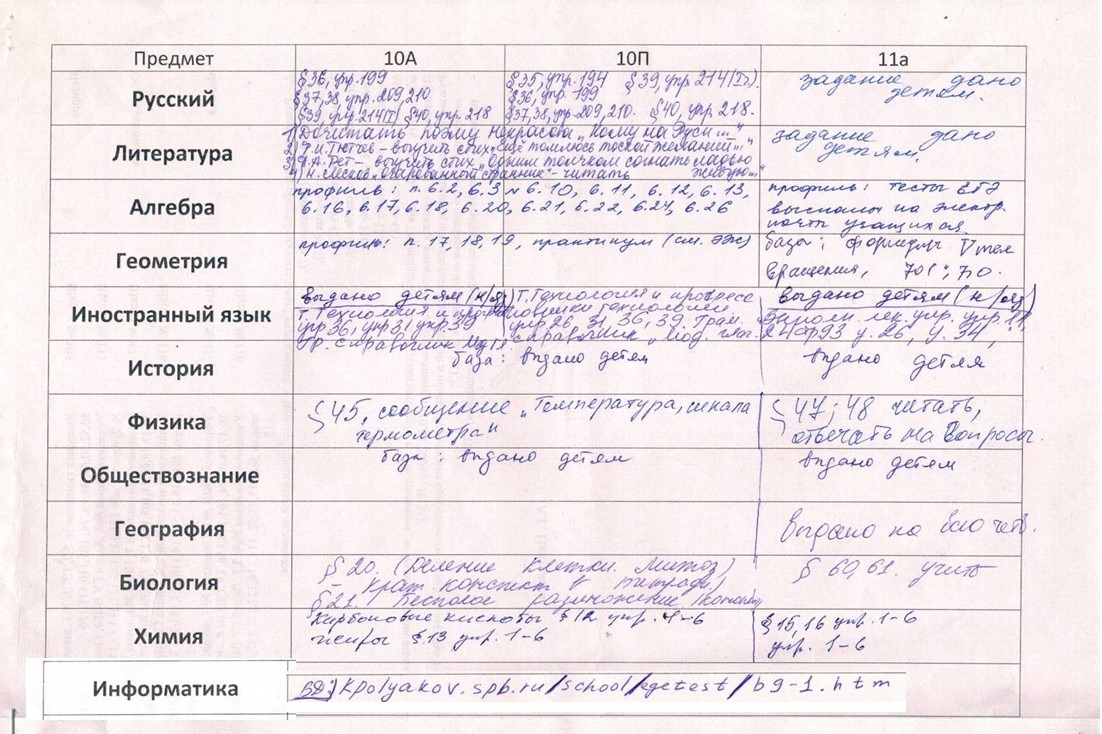 Предмет 10А 10П 11а
Русский
§36, упр. 199
§37,38 упр. 209,210
§39, упр. 214(II) §40, упр. 218
§35, упр. 194 §39, упр. 214(II).
§36, упр. 199
§37,38, упр. 209, 210. §40, упр. 218.
задание дано
детям.
Литература
1) Дочитать поэму Некрасова „Кому на Руси..."
2) Ф.И. Тютчев – выучить стих. „Ещё томлюсь тоской желаний..."
3) А.А. Фет – выучить стих „Одним толчком согнать ладью
живую..."
4) Н. Лесков „Очарованный странник" - читать
задание дано
детям.
Алгебра
профиль: п. 6.2, 6.3 № 6.10, 6.11, 6.12, 6.13,
6.16, 6.17, 6.18, 6.20, 6.21, 6.22, 6.24, 6.26
профиль: тесты ЕГЭ
высланы на электр.
почты учащихся.
Геометрия
профиль: п. 17, 18, 19, практикум (см. ЭЖ)
база: формулы V тел
вращения,
Иностранный язык
выдано детям (н/яз)
т. Технология и
упр 36, упр 31 упр. 39
гр. справочник
Т. Технология и прогресс
упр 26, 31, 36, 39. Грам.
справочник „Мод. глаг.
выдано детям (н/яз)
лек. упр. упр.
у. 26, у. 34,
История
база: выдано детям
выдано детям
Физика
§45, сообщение „Температура, шкала
термометра"
§47; 48 читать,
отвечать на вопросы.
Обществознание
база: выдано детям
выдано детям
География
Выдано на всю четв.
Биология
§20. (Деление клетки. Митоз)
– крат. конспект в тетради,
§21. Бесполое размножение
§ 60, 61. учить
Химия
Карбоновые кислоты §12 упр. 1-6
жиры §13 упр. 1-6
§15, 16 упр. 1-6
упр. 1-6
Информатика
kpolyakov.spb.ru/school/egetest/b9-1.htm